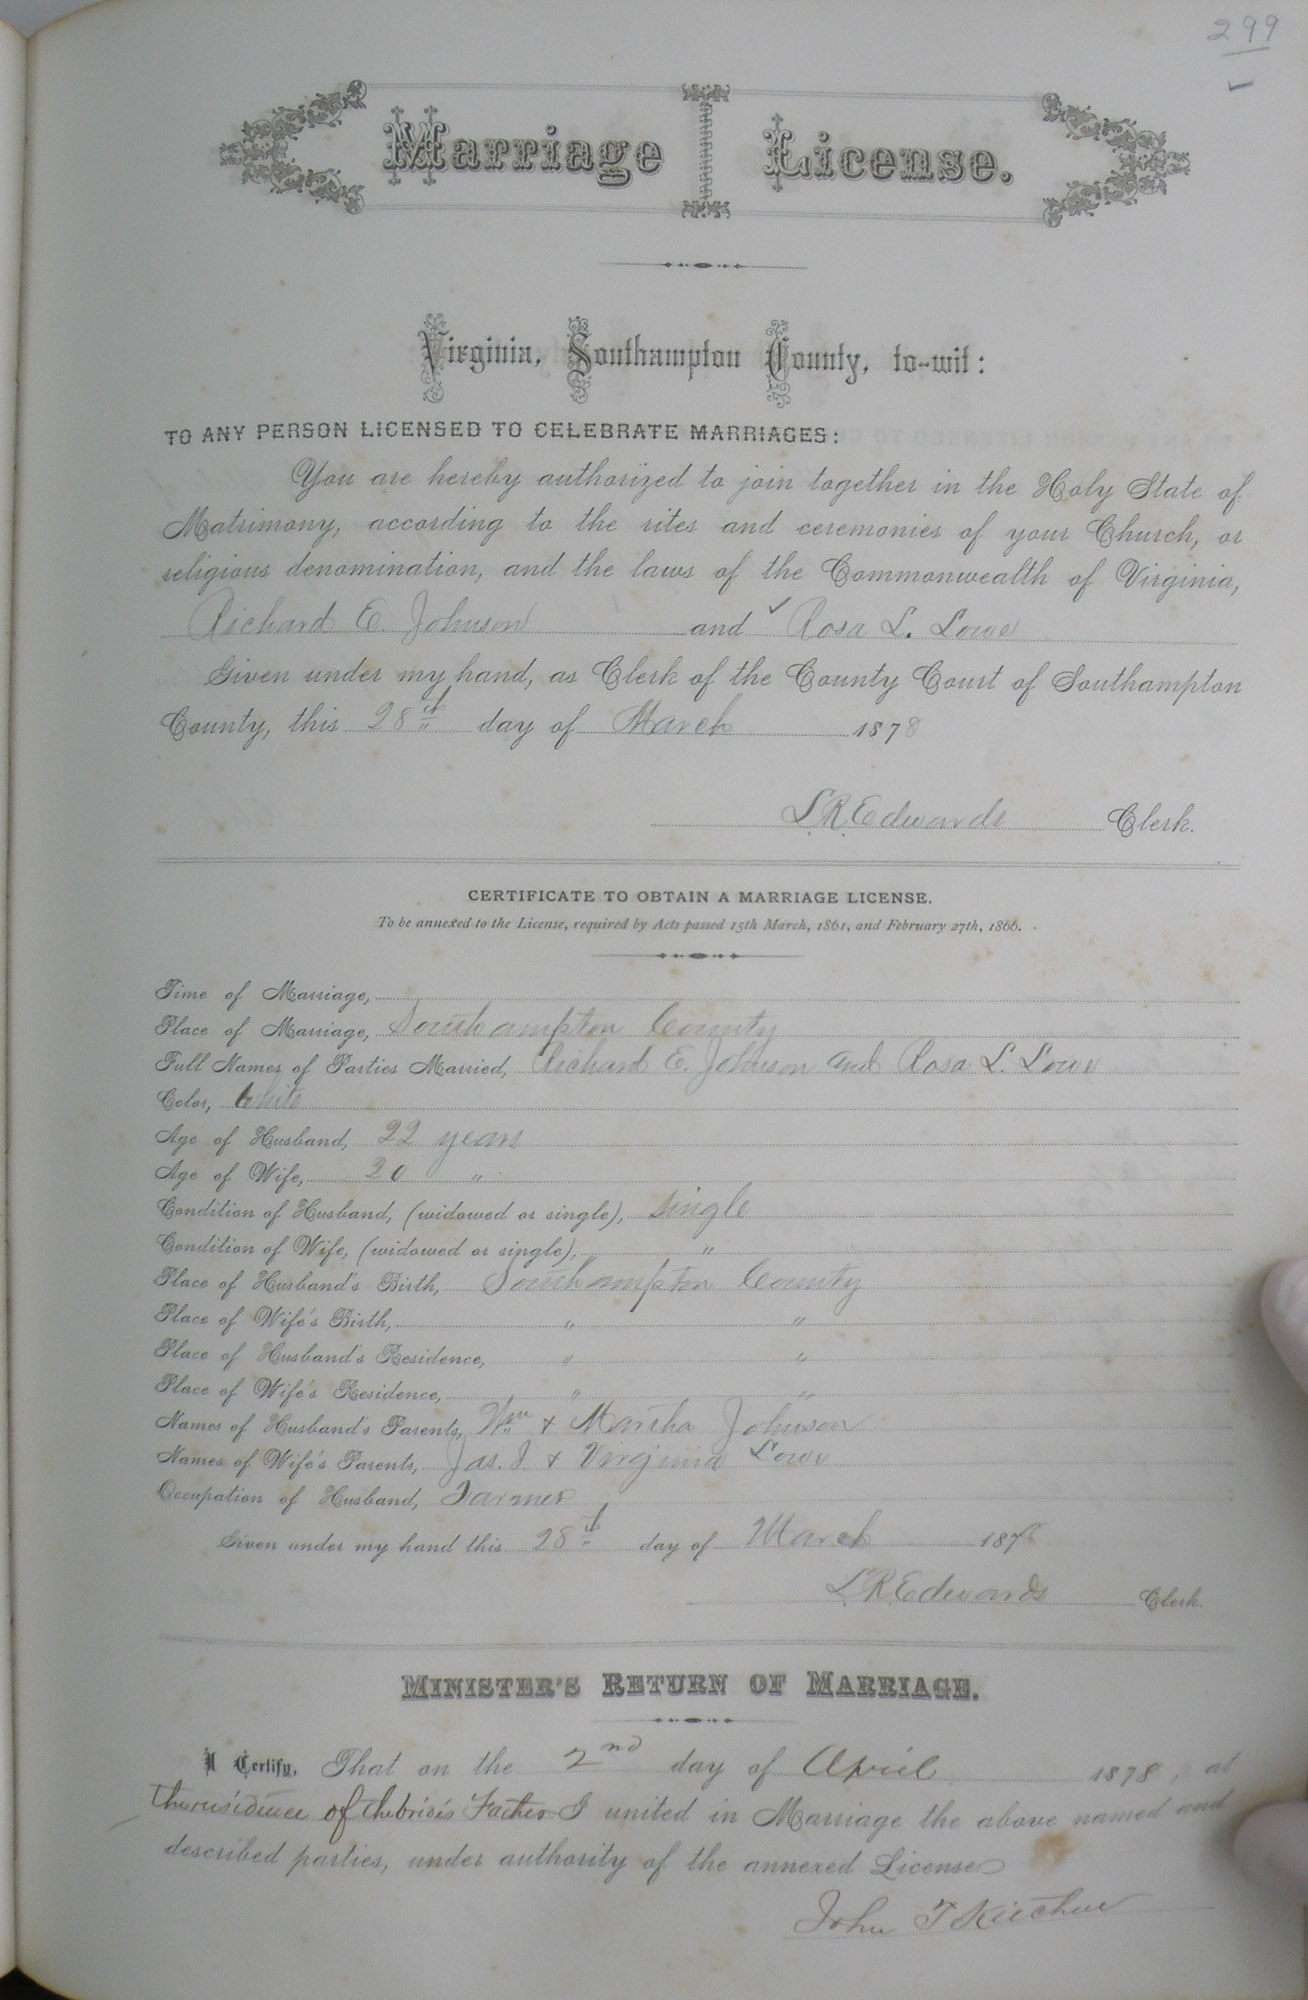 299
Marriage License.
Virginia, Southampton County, to-wit:
TO ANY PERSON LICENSED TO CELEBRATE MARRIAGES:
You are hereby authorized to join together in the Holy State of
Matrimony, according to the rites and ceremonies of your Church, or
religious denomination, and the laws of the Commonwealth of Virginia,
Richard E. Johnson and Rosa L. Lowe
Given under my hand, as Clerk of the County Court of Southampton
County, this 28th day of March 1878
L.R. Edwards Clerk.
CERTIFICATE TO OBTAIN A MARRIAGE LICENSE.
To be annexed to the License, required by Acts passed 15th March, 1861, and February 27th, 1866.
Time of Marriage,
Place of Marriage, Southampton County
Full Names of Parties Married, Richard E. Johnson and Rosa L. Lowe
Color, White
Age of Husband, 22 years
Age of Wife, 20 "
Condition of Husband, (widowed or single), single
Condition of Wife, (widowed or single), "
Place of Husband's Birth, Southampton County
Place of Wife's Birth, " "
Place of Husband's Residence, " "
Place of Wife's Residence, " "
Names of Husband's Parents, Wm & Martha Johnson
Names of Wife's Parents, Jas. J. & Virginia Lowe
Occupation of Husband, Farmer
Given under my hand this 28th day of March 1878
L.R. Edwards Clerk.
MINISTER'S RETURN OF MARRIAGE.
I Certify, That on the 2nd day of April 1878, at
the residence of the Father I united in Marriage the above named and
described parties, under authority of the annexed License
John T